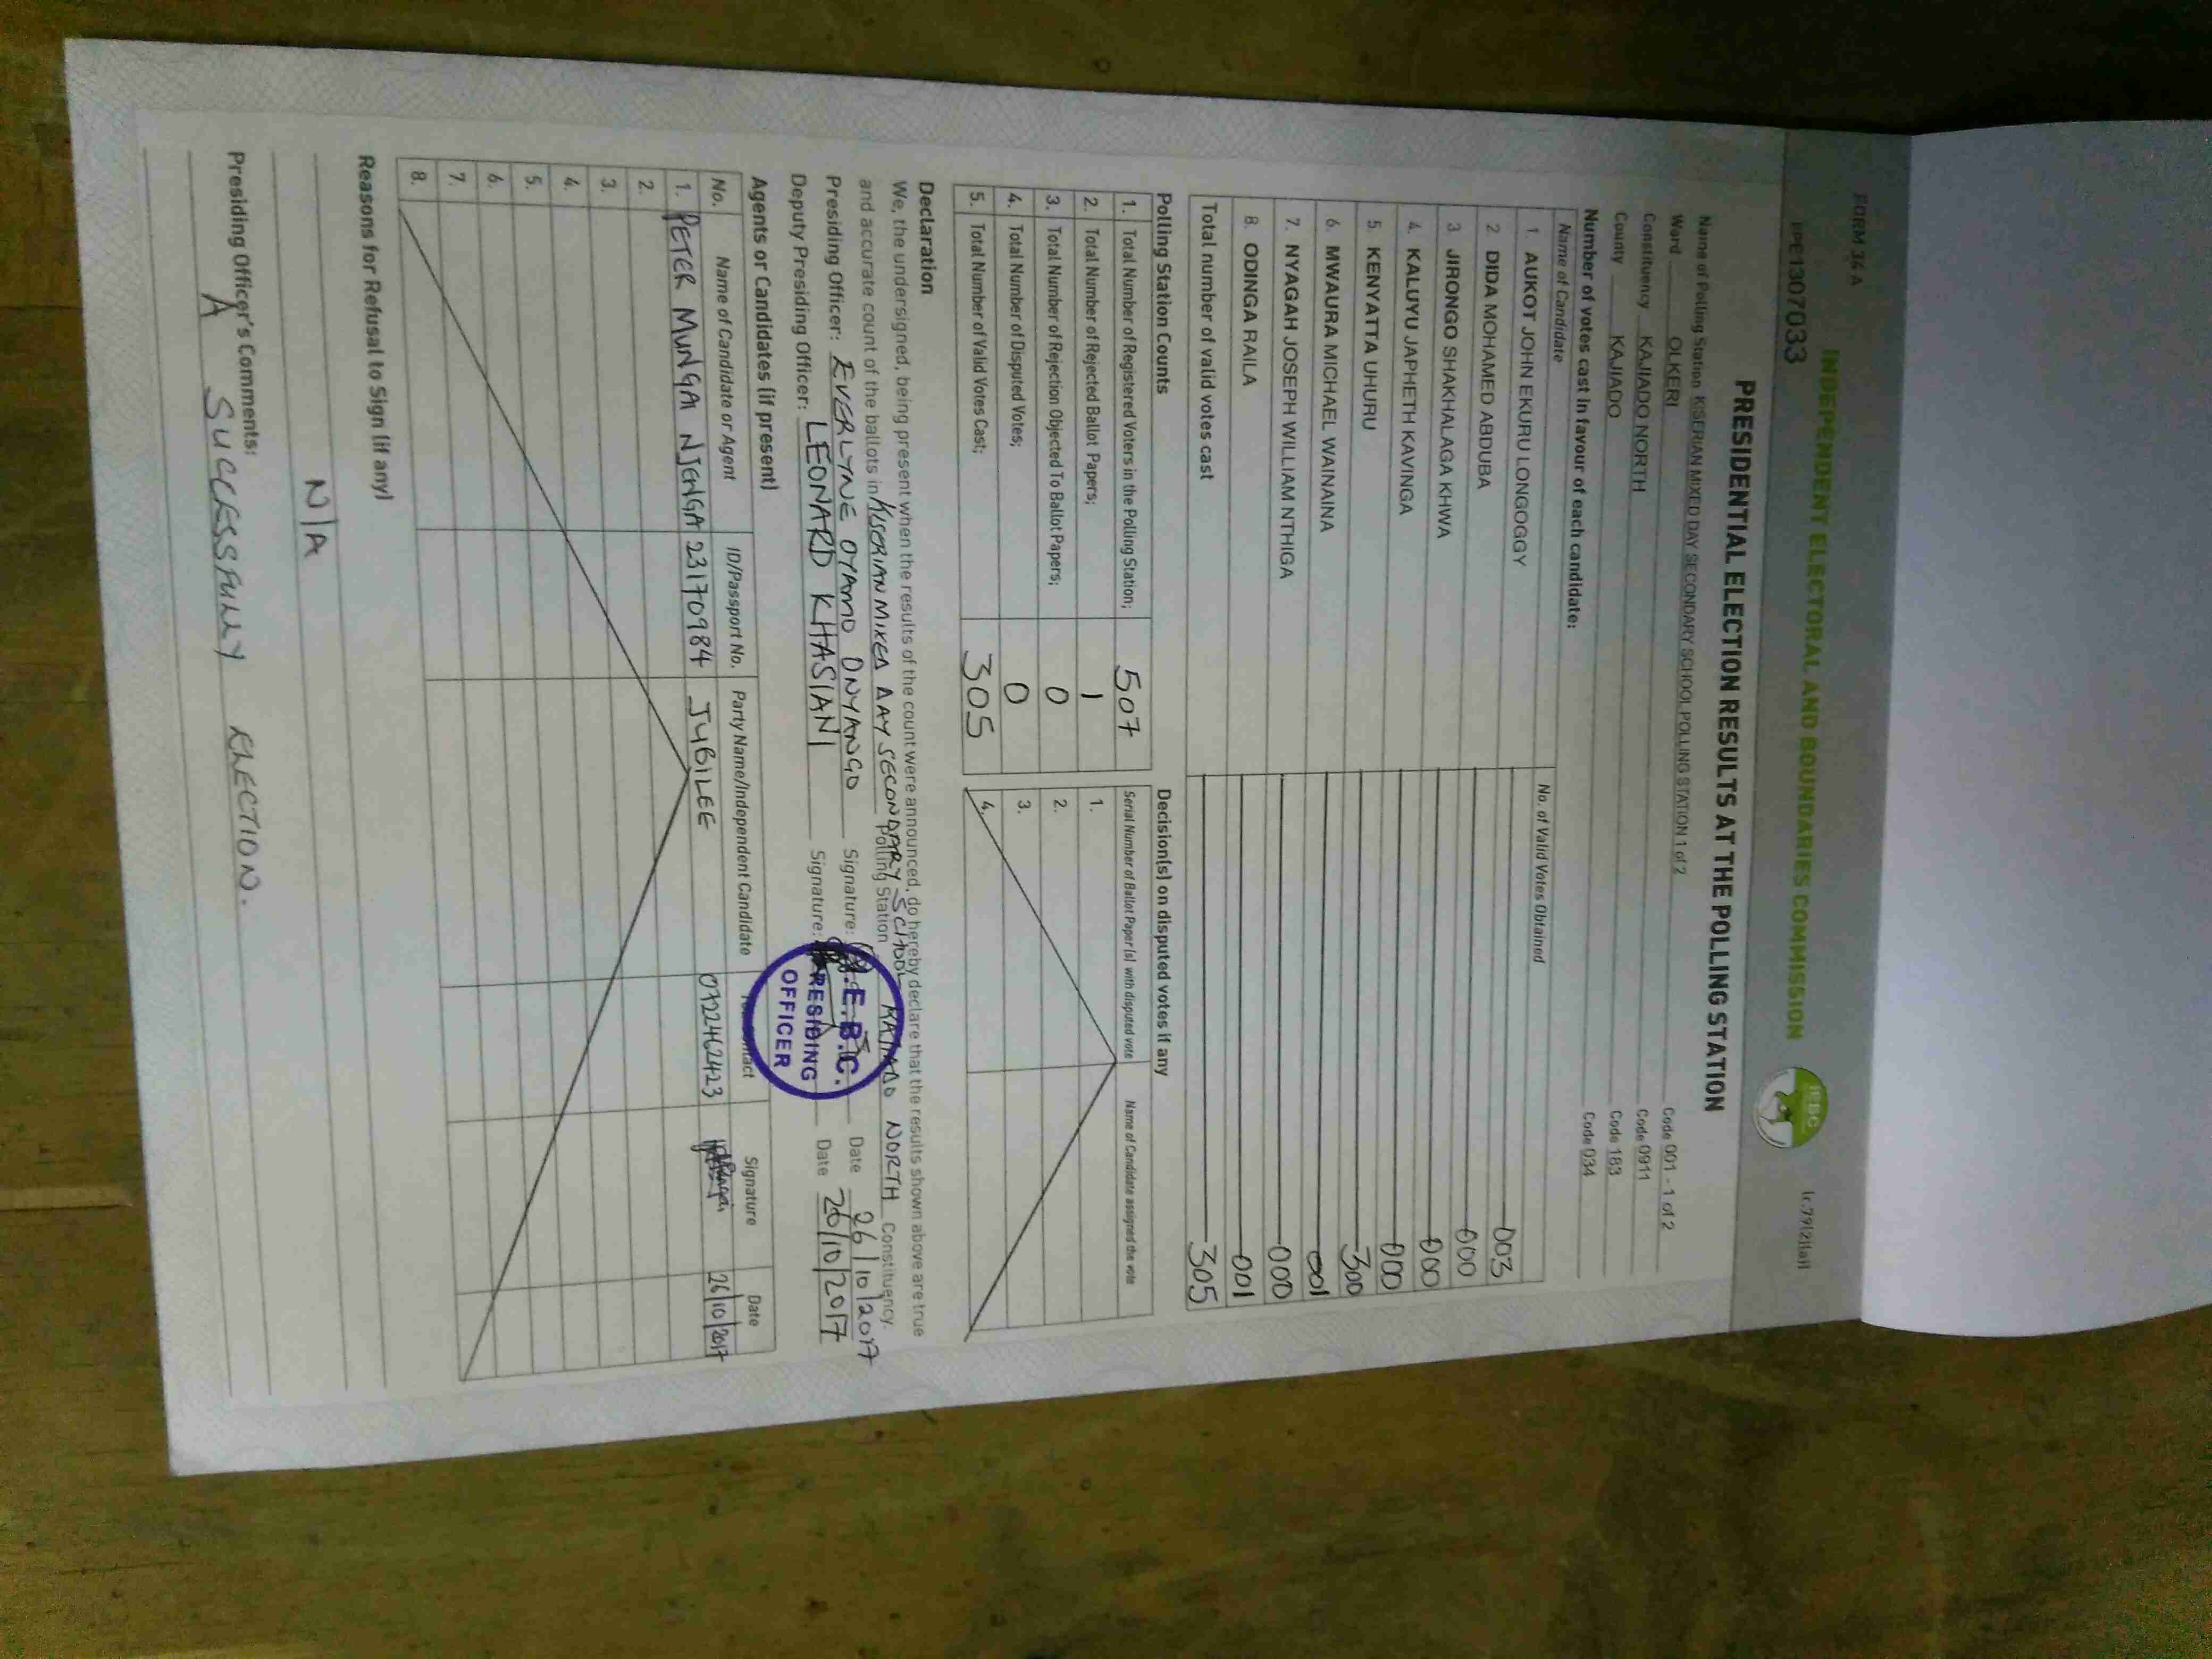 FORM 34 A
INDEPENDENT ELECTORAL AND BOUNDARIES COMMISSION
IEBC
(r.79(2)(a))
PRE1307033
PRESIDENTIAL ELECTION RESULTS AT THE POLLING STATION
Name of Polling Station KISERIAN MIXED DAY SECONDARY SCHOOL POLLING STATION 1 of 2 Code 001 - 1 of 2
Ward OLKERI Code 0911
Constituency KAJIADO NORTH Code 183
County KAJIADO Code 034
Number of votes cast in favour of each candidate:
Name of Candidate No. of Valid Votes Obtained
1. AUKOT JOHN EKURU LONGOGGY 003
2 DIDA MOHAMED ABDUBA 000
3 JIRONGO SHAKHALAGA KHWA 000
4. KALUYU JAPHETH KAVINGA 000
5 KENYATTA UHURU 300
6 MWAURA MICHAEL WAINAINA 001
7. NYAGAH JOSEPH WILLIAM NTHIGA 000
8. ODINGA RAILA 001
Total number of valid votes cast 305
Polling Station Counts
1. Total Number of Registered Voters in the Polling Station; 507
2. Total Number of Rejected Ballot Papers; 1
3. Total Number of Rejection Objected To Ballot Papers; 0
4. Total Number of Disputed Votes; 0
5. Total Number of Valid Votes Cast; 305
Decision(s) on disputed votes if any
Serial Number of Ballot Paper (s) with disputed vote Name of Candidate assigned the vote
1.
2.
3.
4.
Declaration
We, the undersigned, being present when the results of the count were announced, do hereby declare that the results shown above are true
and accurate count of the ballots in KISERIAN MIXED DAY SECONDARY SCHOOL Polling Station KAJIADO NORTH Constituency.
Presiding Officer: EVERLYNE OYAMO ONYANGO Signature: Date 26/10/2017
Deputy Presiding Officer: LEONARD KHASIANI Signature: Date 26/10/2017
I.E.B.C.
PRESIDING
OFFICER
Agents or Candidates (if present)
No. Name of Candidate or Agent ID/Passport No. Party Name/Independent Candidate Contact Signature Date
1. PETER MUNGAI NJENGA 23170984 JUBILEE 0722462423 26/10/2017
2.
3.
4.
5.
6.
7.
8.
Reasons for Refusal to Sign (if any)
N/A
Presiding Officer's Comments:
A SUCCESSFULLY ELECTION.